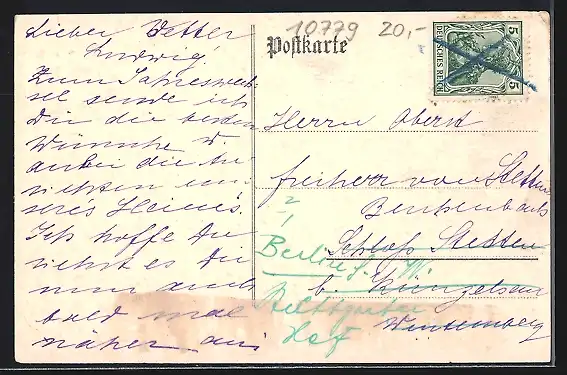 Lieber Vetter
Ludwig,
Zum Jahreswech-
sel sende ich
Dir die besten
Wünsche u.
anbei die An-
sichten un-
seres Heimes.
Ich hoffe Du
siehst es Dir
nun auch
bald mal
näher an
10779 20,-
Postkarte
DEUTSCHES REICH
5 5
Herrn Oberst
Freiherr von Stetten
Buchenbach
Schloß Stetten
b. Künzelsau
Württemberg
Berlin
Hof